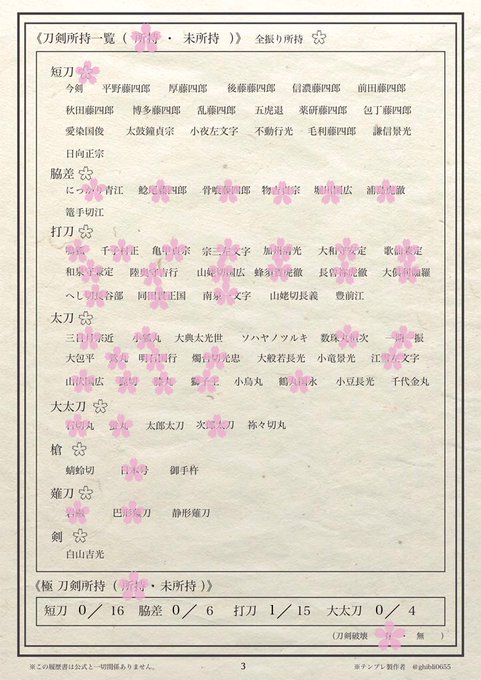 《刀剣所持一覧 ( 所持 ・ 未所持 )》 全振り所持
短刀
今剣 平野藤四郎 厚藤四郎 後藤藤四郎 信濃藤四郎 前田藤四郎
秋田藤四郎 博多藤四郎 乱藤四郎 五虎退 薬研藤四郎 包丁藤四郎
愛染国俊 太鼓鐘貞宗 小夜左文字 不動行光 毛利藤四郎 謙信景光
日向正宗
脇差
にっかり青江 鯰尾藤四郎 骨喰藤四郎 物吉貞宗 堀川国広 浦島虎徹
篭手切江
打刀
鳴狐 千子村正 亀甲貞宗 宗三左文字 加州清光 大和守安定 歌仙兼定
和泉守兼定 陸奥守吉行 山姥切国広 蜂須賀虎徹 長曽祢虎徹 大倶利伽羅
へし切長谷部 同田貫正国 南泉一文字 山姥切長義 豊前江
太刀
三日月宗近 小狐丸 大典太光世 ソハヤノツルキ 数珠丸恒次 一期一振
大包平 鶯丸 明石国行 燭台切光忠 大般若長光 小竜景光 江雪左文字
山伏国広 髭切 膝丸 獅子王 小烏丸 鶴丸国永 小豆長光 千代金丸
大太刀
石切丸 蛍丸 太郎太刀 次郎太刀 祢々切丸
槍
蜻蛉切 日本号 御手杵
薙刀
岩融 巴形薙刀 静形薙刀
剣
白山吉光
《極 刀剣所持 ( 所持 ・ 未所持 )》
短刀 0／ 16 脇差 0／ 6 打刀 1／ 15 大太刀 0／ 4
(刀剣破壊 有 ・ 無 )
※この履歴書は公式と一切関係ありません。 3 ※テンプレ製作者 @ghibli0655